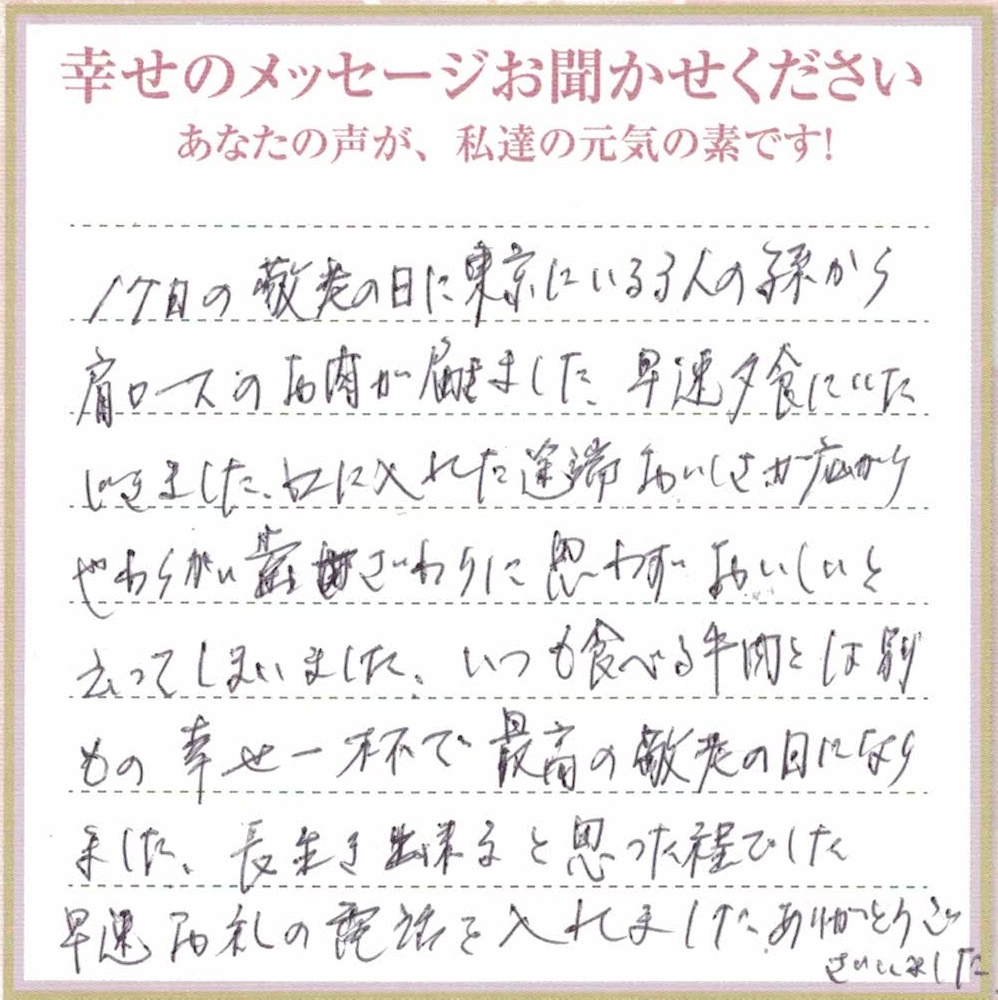 幸せのメッセージお聞かせください
あなたの声が、私達の元気の素です!
17日の敬老の日に東京にいる3人の孫から
肩ロースのお肉が届きました、早速夕食にいた
だきました、口に入れた途端おいしさが広がり
やわらかい歯ざわりに思わずおいしいと
云ってしまいました、いつも食べる牛肉とは別
もの 幸せ一杯で最高の敬老の日になり
ました、長生き出来ると思った程でした
早速お礼の電話を入れました ありがとうご
ざいました